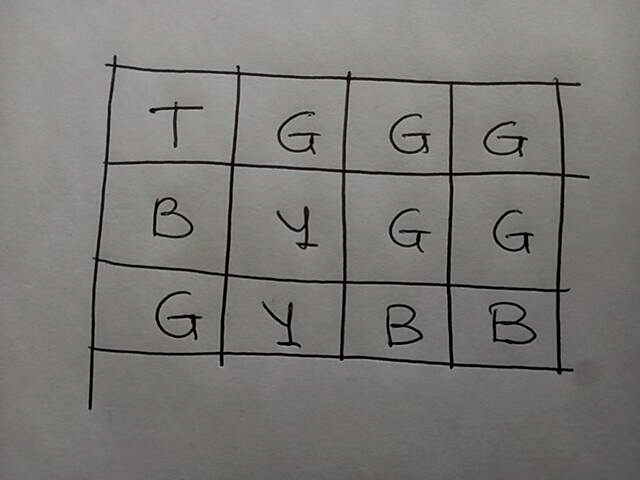 T G G G
B Y G G
G Y B B